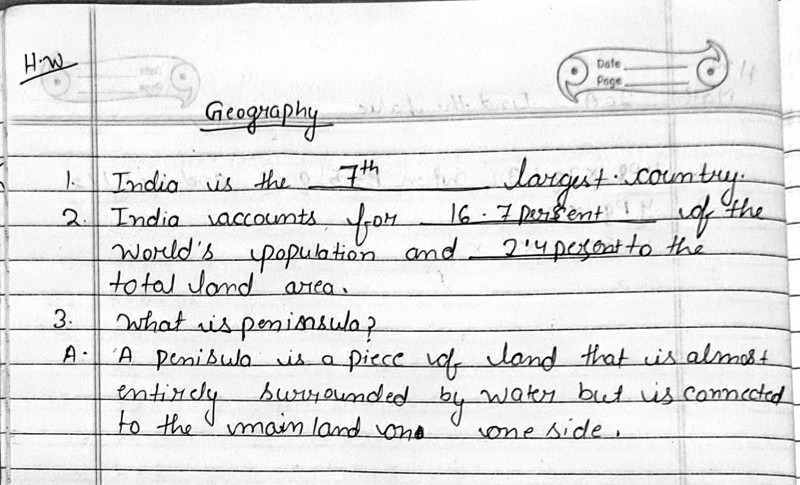 H.W
Date
Page
Geography
1. India is the 7th largest country.
2. India accounts for 16.7 persent of the
World's population and 2.4 persent to the
total land area.
3. What is peninsula?
A. A penisula is a piece of land that is almost
entirely surrounded by water but is connected
to the main land on one side.